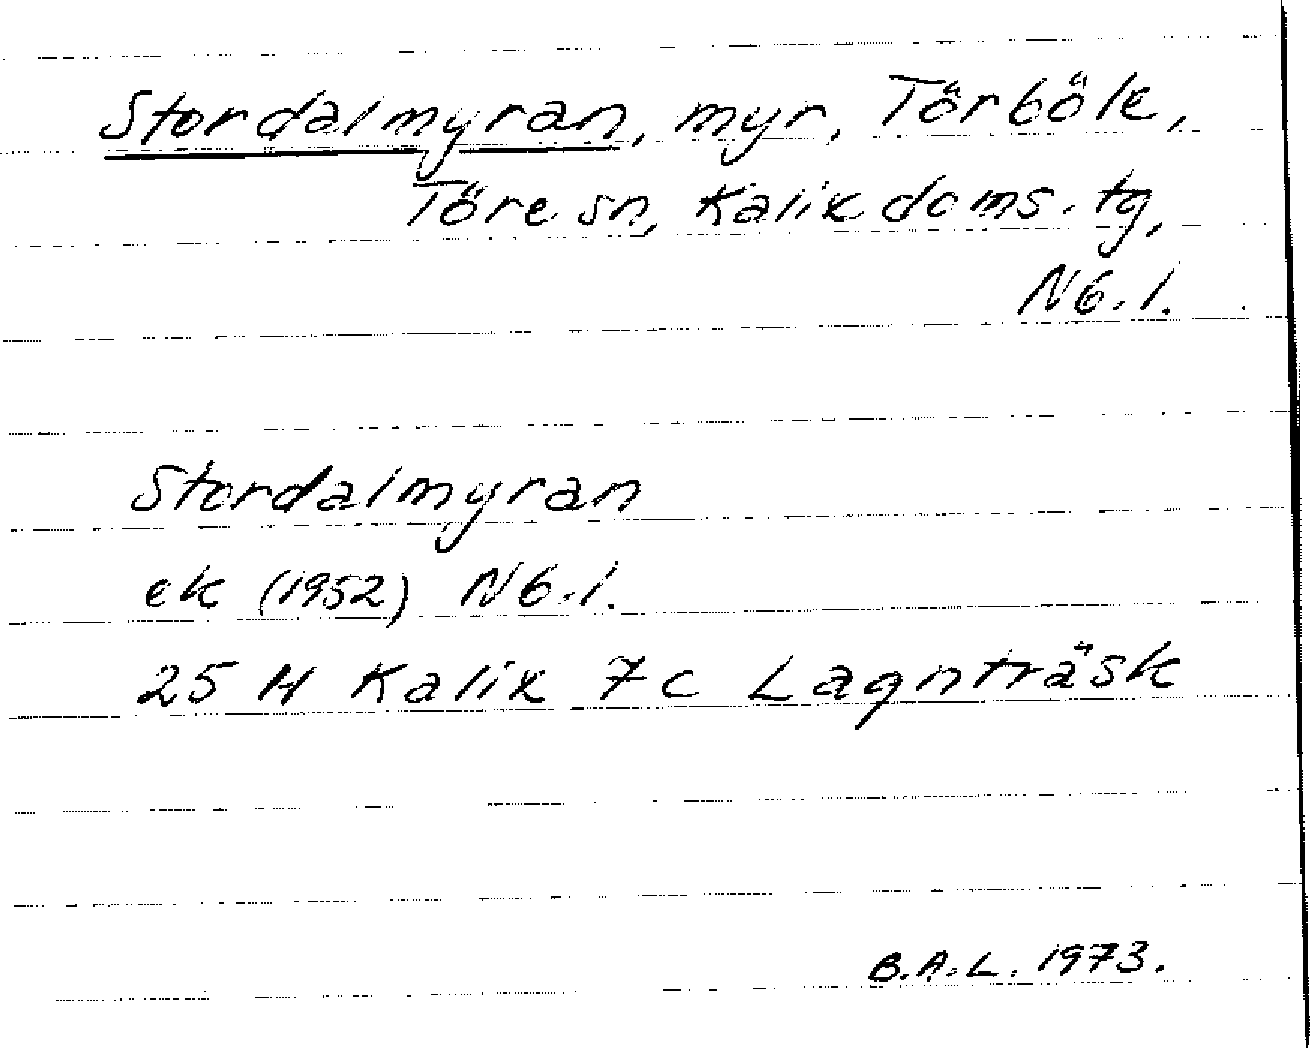 Stordalmyran, myr, Törböle,
Töre sn, Kalix doms. tg,
Nb. l.
Stordalmyran
ek (1952) Nb. l.
25 M Kalix 7c Lagnträsk
B.A.L. 1973.